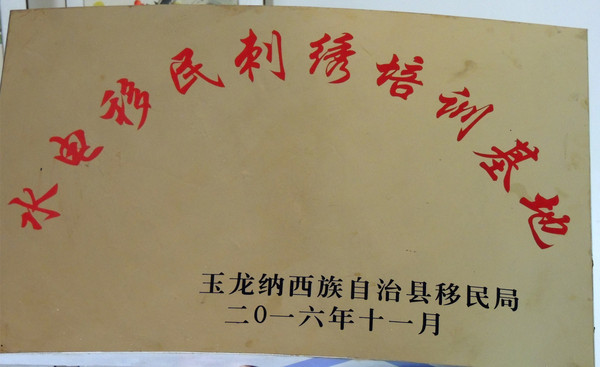 水电移民刺绣培训基地
玉龙纳西族自治县移民局
二〇一六年十一月